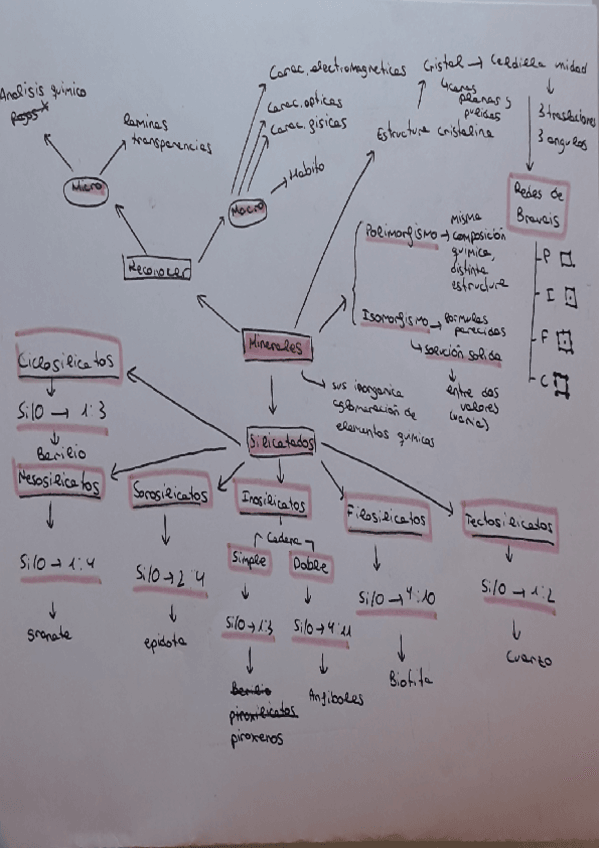 Analisis químico
Rayos X
Laminas
transparencias
Micro
Carac. electromagneticas
Carac. opticas
Carac. fisicas
Habito
Macro
Reconocer
Cristal → Celdilla unidad
caras
planas y
pulidas
3 traslaciones
3 angulos
Estructura cristalina
Redes de
Bravais
P
I
F
C
Polimorfismo → misma
composición
química,
distinta
estructura
Isomorfismo → formulas
parecidas
solución solida
entre dos
valores
(varia)
Minerales
sus inorganica
aglomeración de
elementos químicos
Silicatados
Ciclosilicatos
Si/O → 1:3
Berilio
Nesosilicatos
Si/O → 1:4
granate
Sorosilicatos
Si/O → 2:4
epidota
Inosilicatos
Cadena
Simple
Doble
Si/O → 1:3
Si/O → 4:11
Berilio
piroxilicatos
piroxenos
Anfiboles
Filosilicatos
Si/O → 4:10
Biotita
Tectosilicatos
Si/O → 1:2
Cuarzo